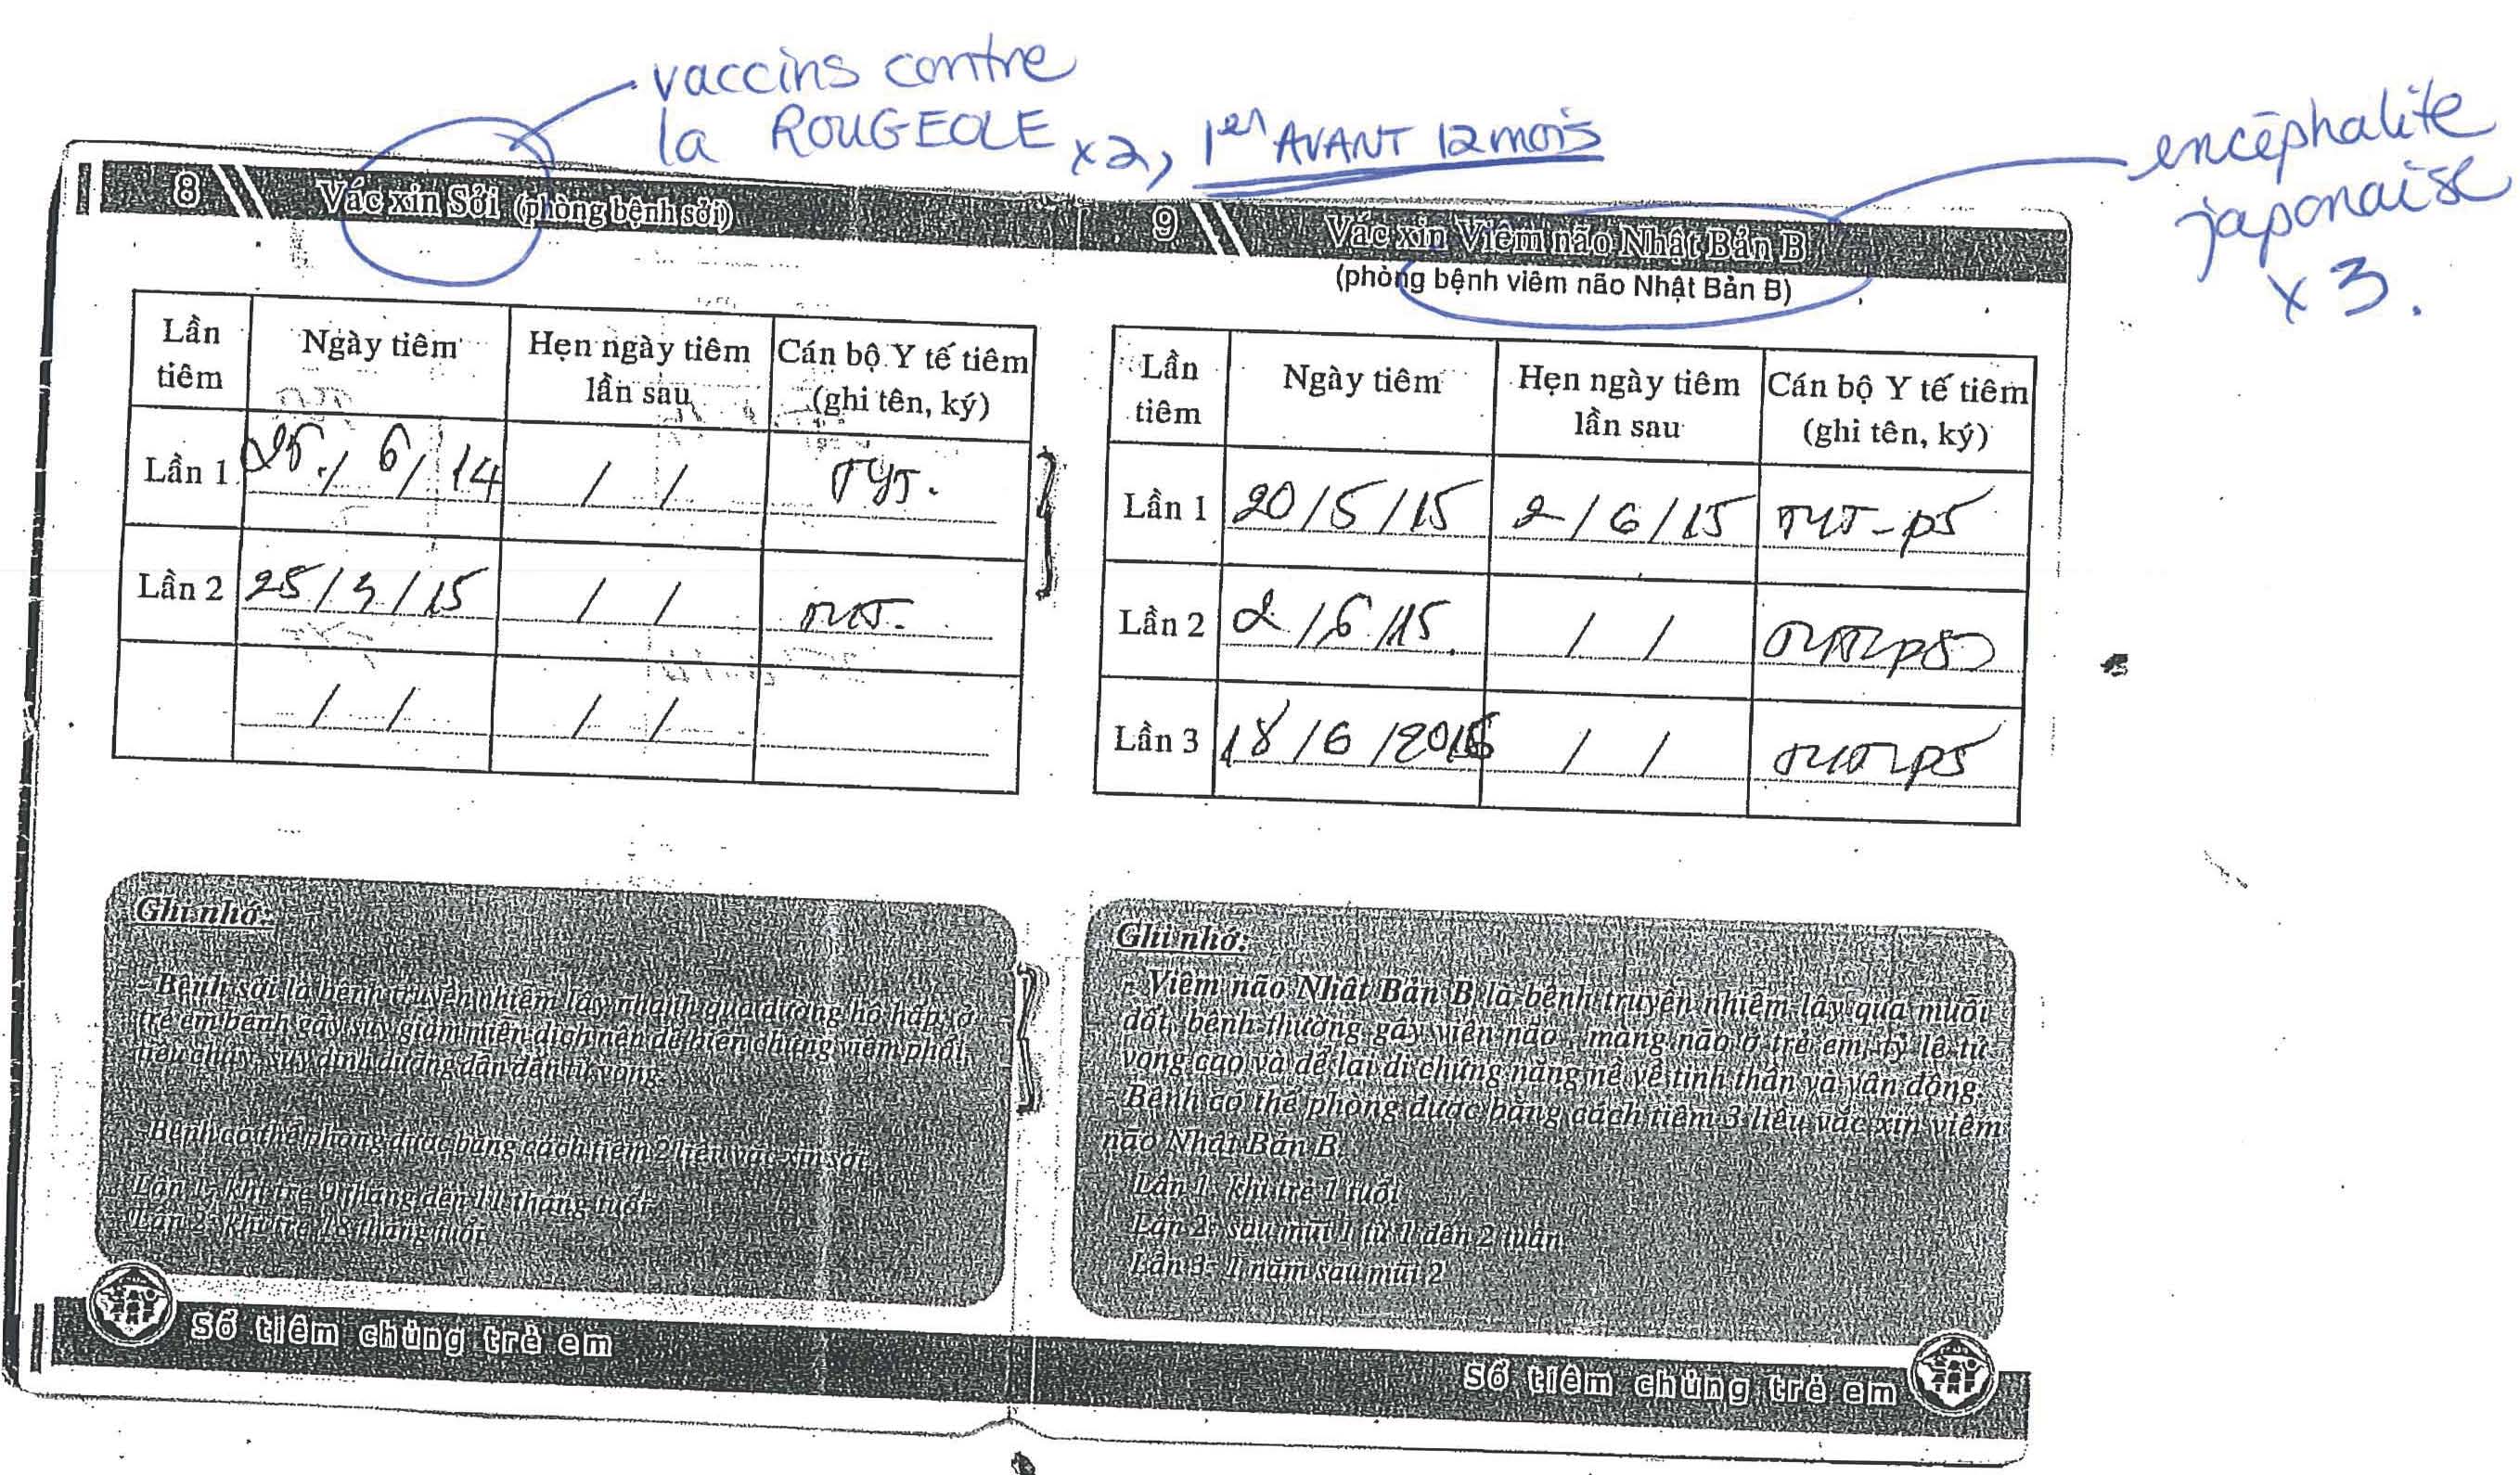 vaccins contre
la ROUGEOLE x2, 1er AVANT 12 mois
encéphalite
japonaise
x 3.
8 Vắc xin Sởi (phòng bệnh sởi)
Lần tiêm Ngày tiêm Hẹn ngày tiêm lần sau Cán bộ Y tế tiêm (ghi tên, ký)
Lần 1 25/6/14 / / TYT.
Lần 2 25/3/15 / / TYT.
/ / / /
Ghi nhớ:
- Bệnh sởi là bệnh truyền nhiễm lây nhanh qua đường hô hấp, ở
trẻ em bệnh gây suy giảm miễn dịch nên dễ biến chứng viêm phổi,
tiêu chảy, suy dinh dưỡng dẫn đến tử vong.
- Bệnh có thể phòng được bằng cách tiêm 2 liều vắc xin sởi
Lần 1: khi trẻ 9 tháng đến 11 tháng tuổi
Lần 2: khi trẻ 18 tháng tuổi
Sổ tiêm chủng trẻ em
9 Vắc xin Viêm não Nhật Bản B
(phòng bệnh viêm não Nhật Bản B)
Lần tiêm Ngày tiêm Hẹn ngày tiêm lần sau Cán bộ Y tế tiêm (ghi tên, ký)
Lần 1 20/5/15 2/6/15 TYT-p5
Lần 2 2/6/15 / /
Lần 3 18/6/2016 / /
Ghi nhớ:
- Viêm não Nhật Bản B là bệnh truyền nhiễm lây qua muỗi
đốt, bệnh thường gây viện não, màng não ở trẻ em, tỷ lệ tử
vong cao và để lại di chứng nặng nề về tinh thần và vận động.
- Bệnh có thể phòng được bằng cách tiêm 3 liều vắc xin viêm
não Nhật Bản B.
Lần 1: khi trẻ 1 tuổi
Lần 2: sau mũi 1 từ 1 đến 2 tuần
Lần 3: 1 năm sau mũi 2
Sổ tiêm chủng trẻ em